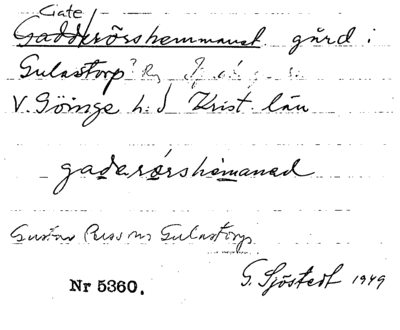 Gate
Gadderörshemmanet gård i
Gulastorp
V. Göinge h.d Krist. län
gaderörshemaned
Gustav Persson, Gulastorp
Nr 5360.
G. Sjöstedt 1949